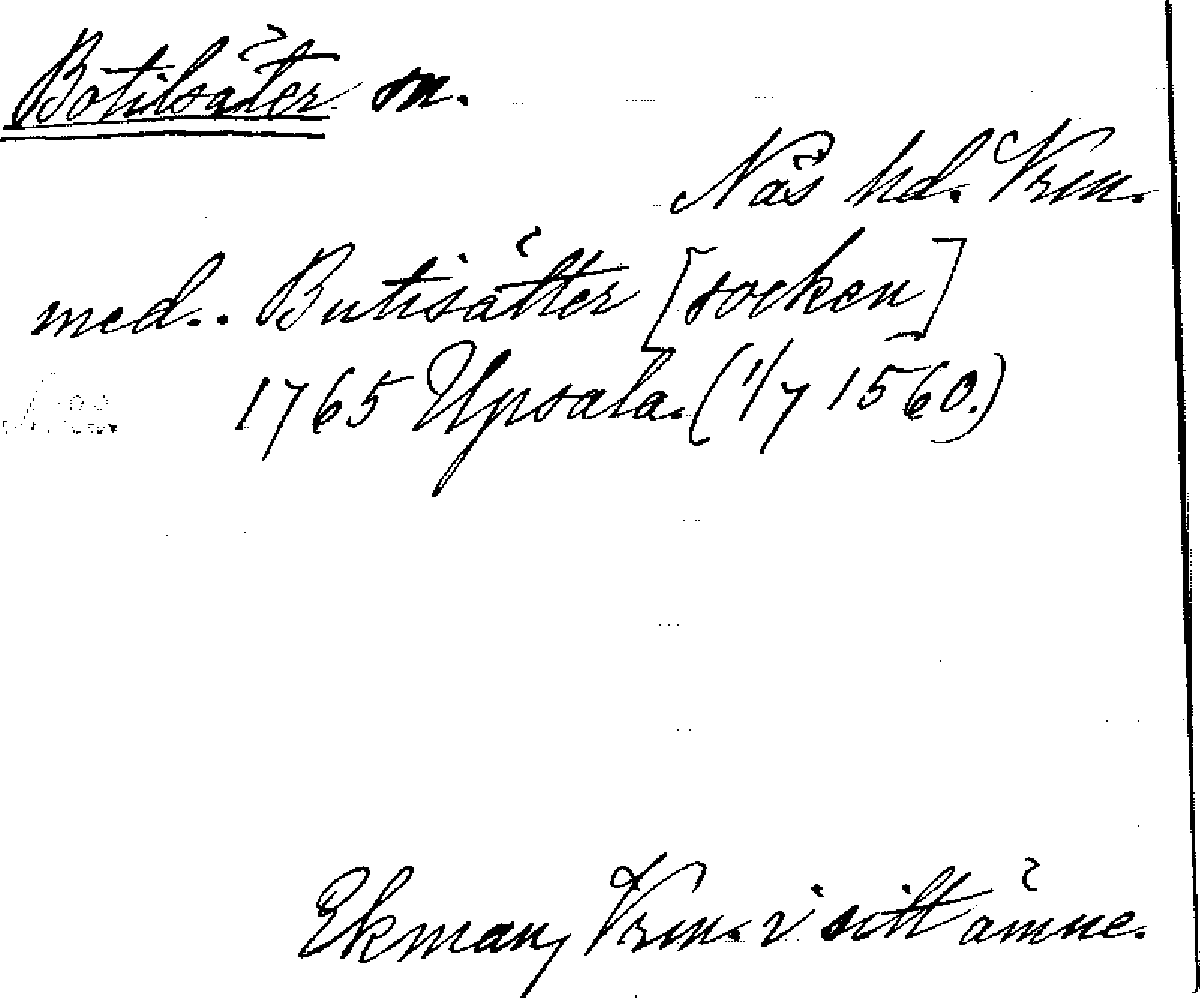 Botilsäter sn.
Näs hd. Vrm.
med.. Butisätter [socken]
1765 Upsala. (1/7 1560.)
Ekman, Vrm. i sitt ämne.